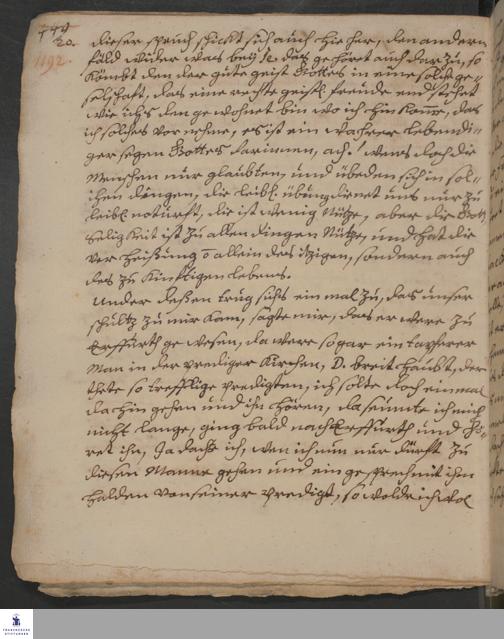 749
20.
1192.
dieser spruch schickt sich auch hie her, den andern
fäld wider was bey ꝛc. das gehöret auch darzu, so
kömbt den der gute geist Gottes in eine solche ge-
selschaft, das eine rechte geistl. freude endstehet
wie ichs den gewohnet bin wo ich hin komme, das
ich solches vornehme, es ist ein wahrer lebendi-
ger segen Gottes darinnen, ach! wens doch die
Menschen nur glaubten, und übeden sich in sol-
chen dingen, die leibl. übung dienet uns nur zu
leibl. notturft, die ist wenig Nütze, aber die Gott
Seligkeit ist zu allen dingen Nütze, und hat die
verheißung allein des itzigen, sondern auch
des zukünftigen lebens.
Under deßen trug sichs ein mal zu, das unser
schultz zu mir kam, sagte mir, das er were zu
Erffurth gewesen, da were so gar ein tapferer
Man in der prediger Kirchen, D. breithaubt, der
thete so treffliche predigten, ich solte doch einmal
dahin gehen und ihn hören, da seumte ich mich
nicht lange, ging bald nach Erffurth und hö-
ret ihn, Da dacht ich, wen ich nun nur dürft zu
diesen Manne gehen und ein gesprech mit ihm
halden von seiner predigt, so wold ich wol
FRANCKESCHE
STIFTUNGEN